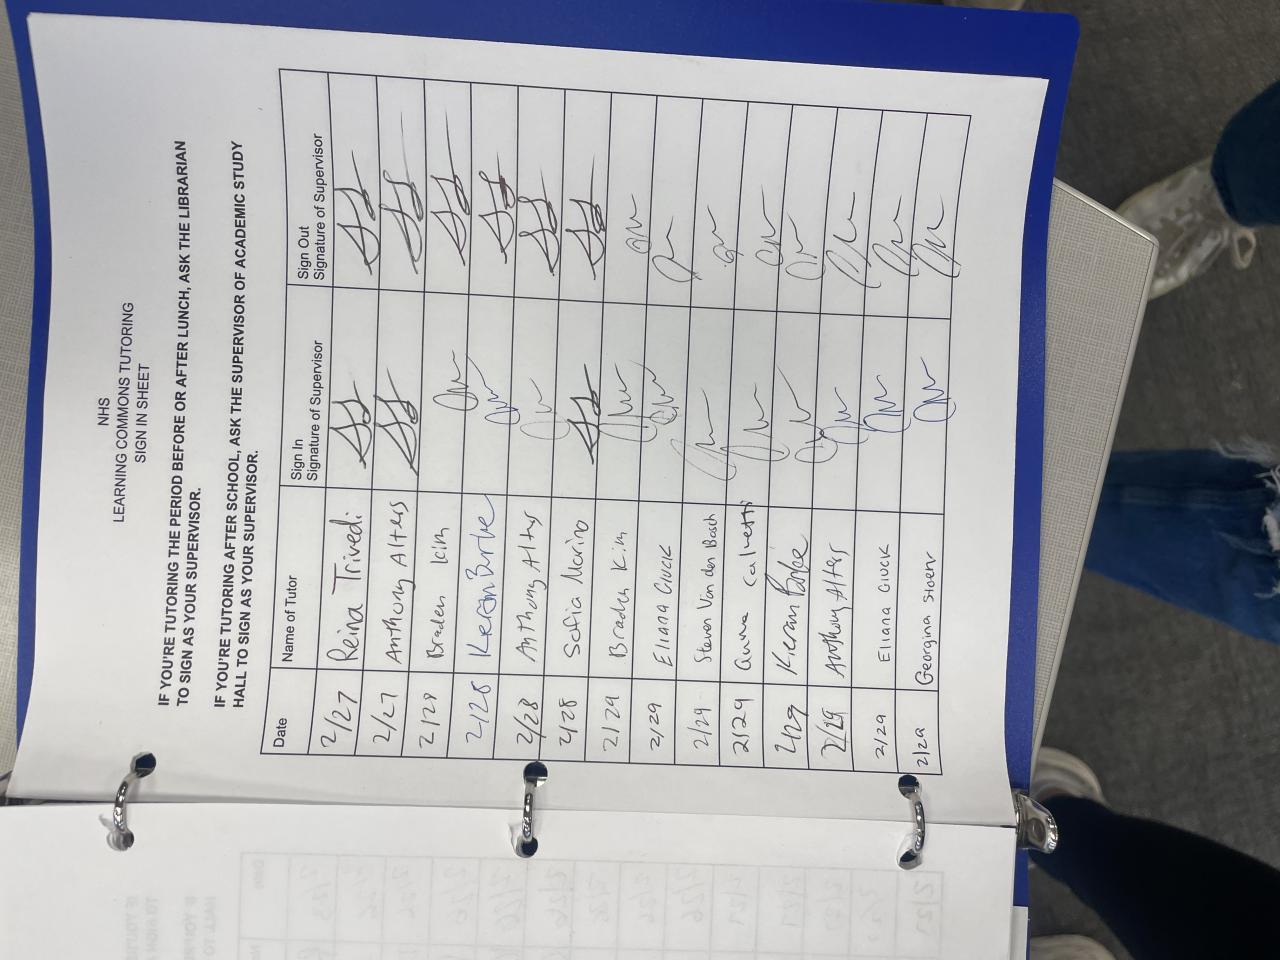 NHS
LEARNING COMMONS TUTORING
SIGN IN SHEET
IF YOU'RE TUTORING THE PERIOD BEFORE OR AFTER LUNCH, ASK THE LIBRARIAN
TO SIGN AS YOUR SUPERVISOR.
IF YOU'RE TUTORING AFTER SCHOOL, ASK THE SUPERVISOR OF ACADEMIC STUDY
HALL TO SIGN AS YOUR SUPERVISOR.
Date Name of Tutor Sign In Signature of Supervisor Sign Out Signature of Supervisor
2/27 Reina Trivedi
2/27 Anthony Alters
2/28 Braden Kim
2/28 Kieran Burke
2/28 Anthony Alters
2/28 Sofia Marino
2/29 Braden Kim
2/29 Eliana Gluck
2/29 Steven Van den Bosch
2/29 Anna Calvetti
2/29 Kieran Burke
2/29 Anthony Alters
2/29 Eliana Gluck
2/29 Georgina